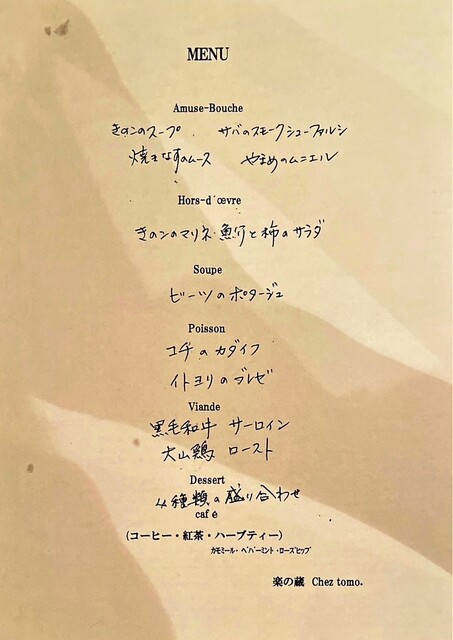 MENU
Amuse-Bouche
きのこのスープ . サバのスモークシューファルシ
焼きなすのムース やまめのムニエル
Hors-d´œvre
きのこのマリネ・魚介と柿のサラダ
Soupe
ビーツのポタージュ
Poisson
コチのカダイフ
イトヨリのブレゼ
Viande
黒毛和牛 サーロイン
大山鶏 ロースト
Dessert
4種類の盛り合わせ
café
(コーヒー・紅茶・ハーブティー)
カモミール・ペパーミント・ローズヒップ
楽の蔵 Chez tomo.